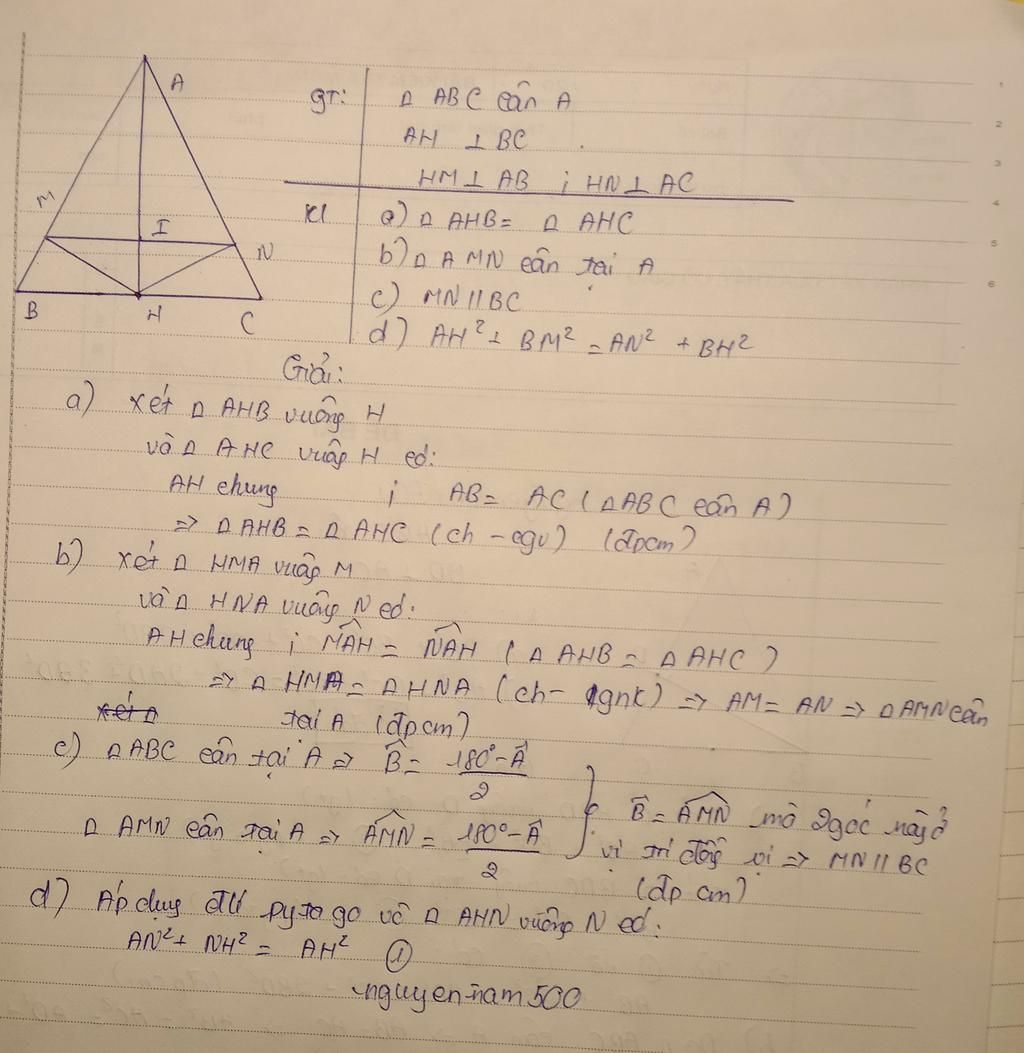 A
M
I
N
B
H
C
GT:
Δ ABC cân A
AH ⊥ BC
HM ⊥ AB ; HN ⊥ AC
Kl
a) Δ AHB = Δ AHC
b) Δ AMN cân tại A
c) MN // BC
d) AH² + BM² = AN² + BH²
1
2
3
4
5
6
Giải:
a) xét Δ AHB vuông H
và Δ AHC vuông H có:
AH chung ; AB = AC (Δ ABC cân A)
=> Δ AHB = Δ AHC (ch - cgv) (đpcm)
b) xét Δ HMA vuông M
và Δ HNA vuông N có:
AH chung ; MÂH = NÂH (Δ AHB = Δ AHC)
=> Δ HMA = Δ HNA (ch - gnk) => AM = AN => Δ AMN cân
xét Δ tại A (đpcm)
c) Δ ABC cân tại A => B̂ = (180° - Â)/2
Δ AMN cân tại A => AM̂N = (180° - Â)/2
} B̂ = AM̂N mà 2 góc này ở
vị trí đồng vị => MN // BC
(đpcm)
d) Áp dụng đlí pytago vô Δ AHN vuông N có:
AN² + NH² = AH² ①
nguyen-nam500